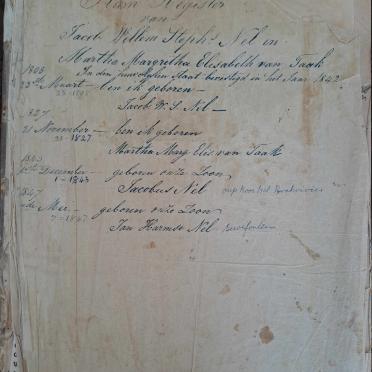 Stam Register
van
Jacob Willem Steph^s Nel en
Martha Margritha Elisabeth van Taak
In den huwelyken Staat bevestigd in het Jaar 1842
1808
23^ste Maart — ben ik geboren —
23-
Jacob W. S. Nel —
1827
21 November — ben ik geboren
21-1827
Martha Marg Elis van Taak
1843
December — geboren onze Zoon
1-1843
Jacobus Nel
1847
Mei — geboren onze Zoon
7-1847
Jan Harmse Nel